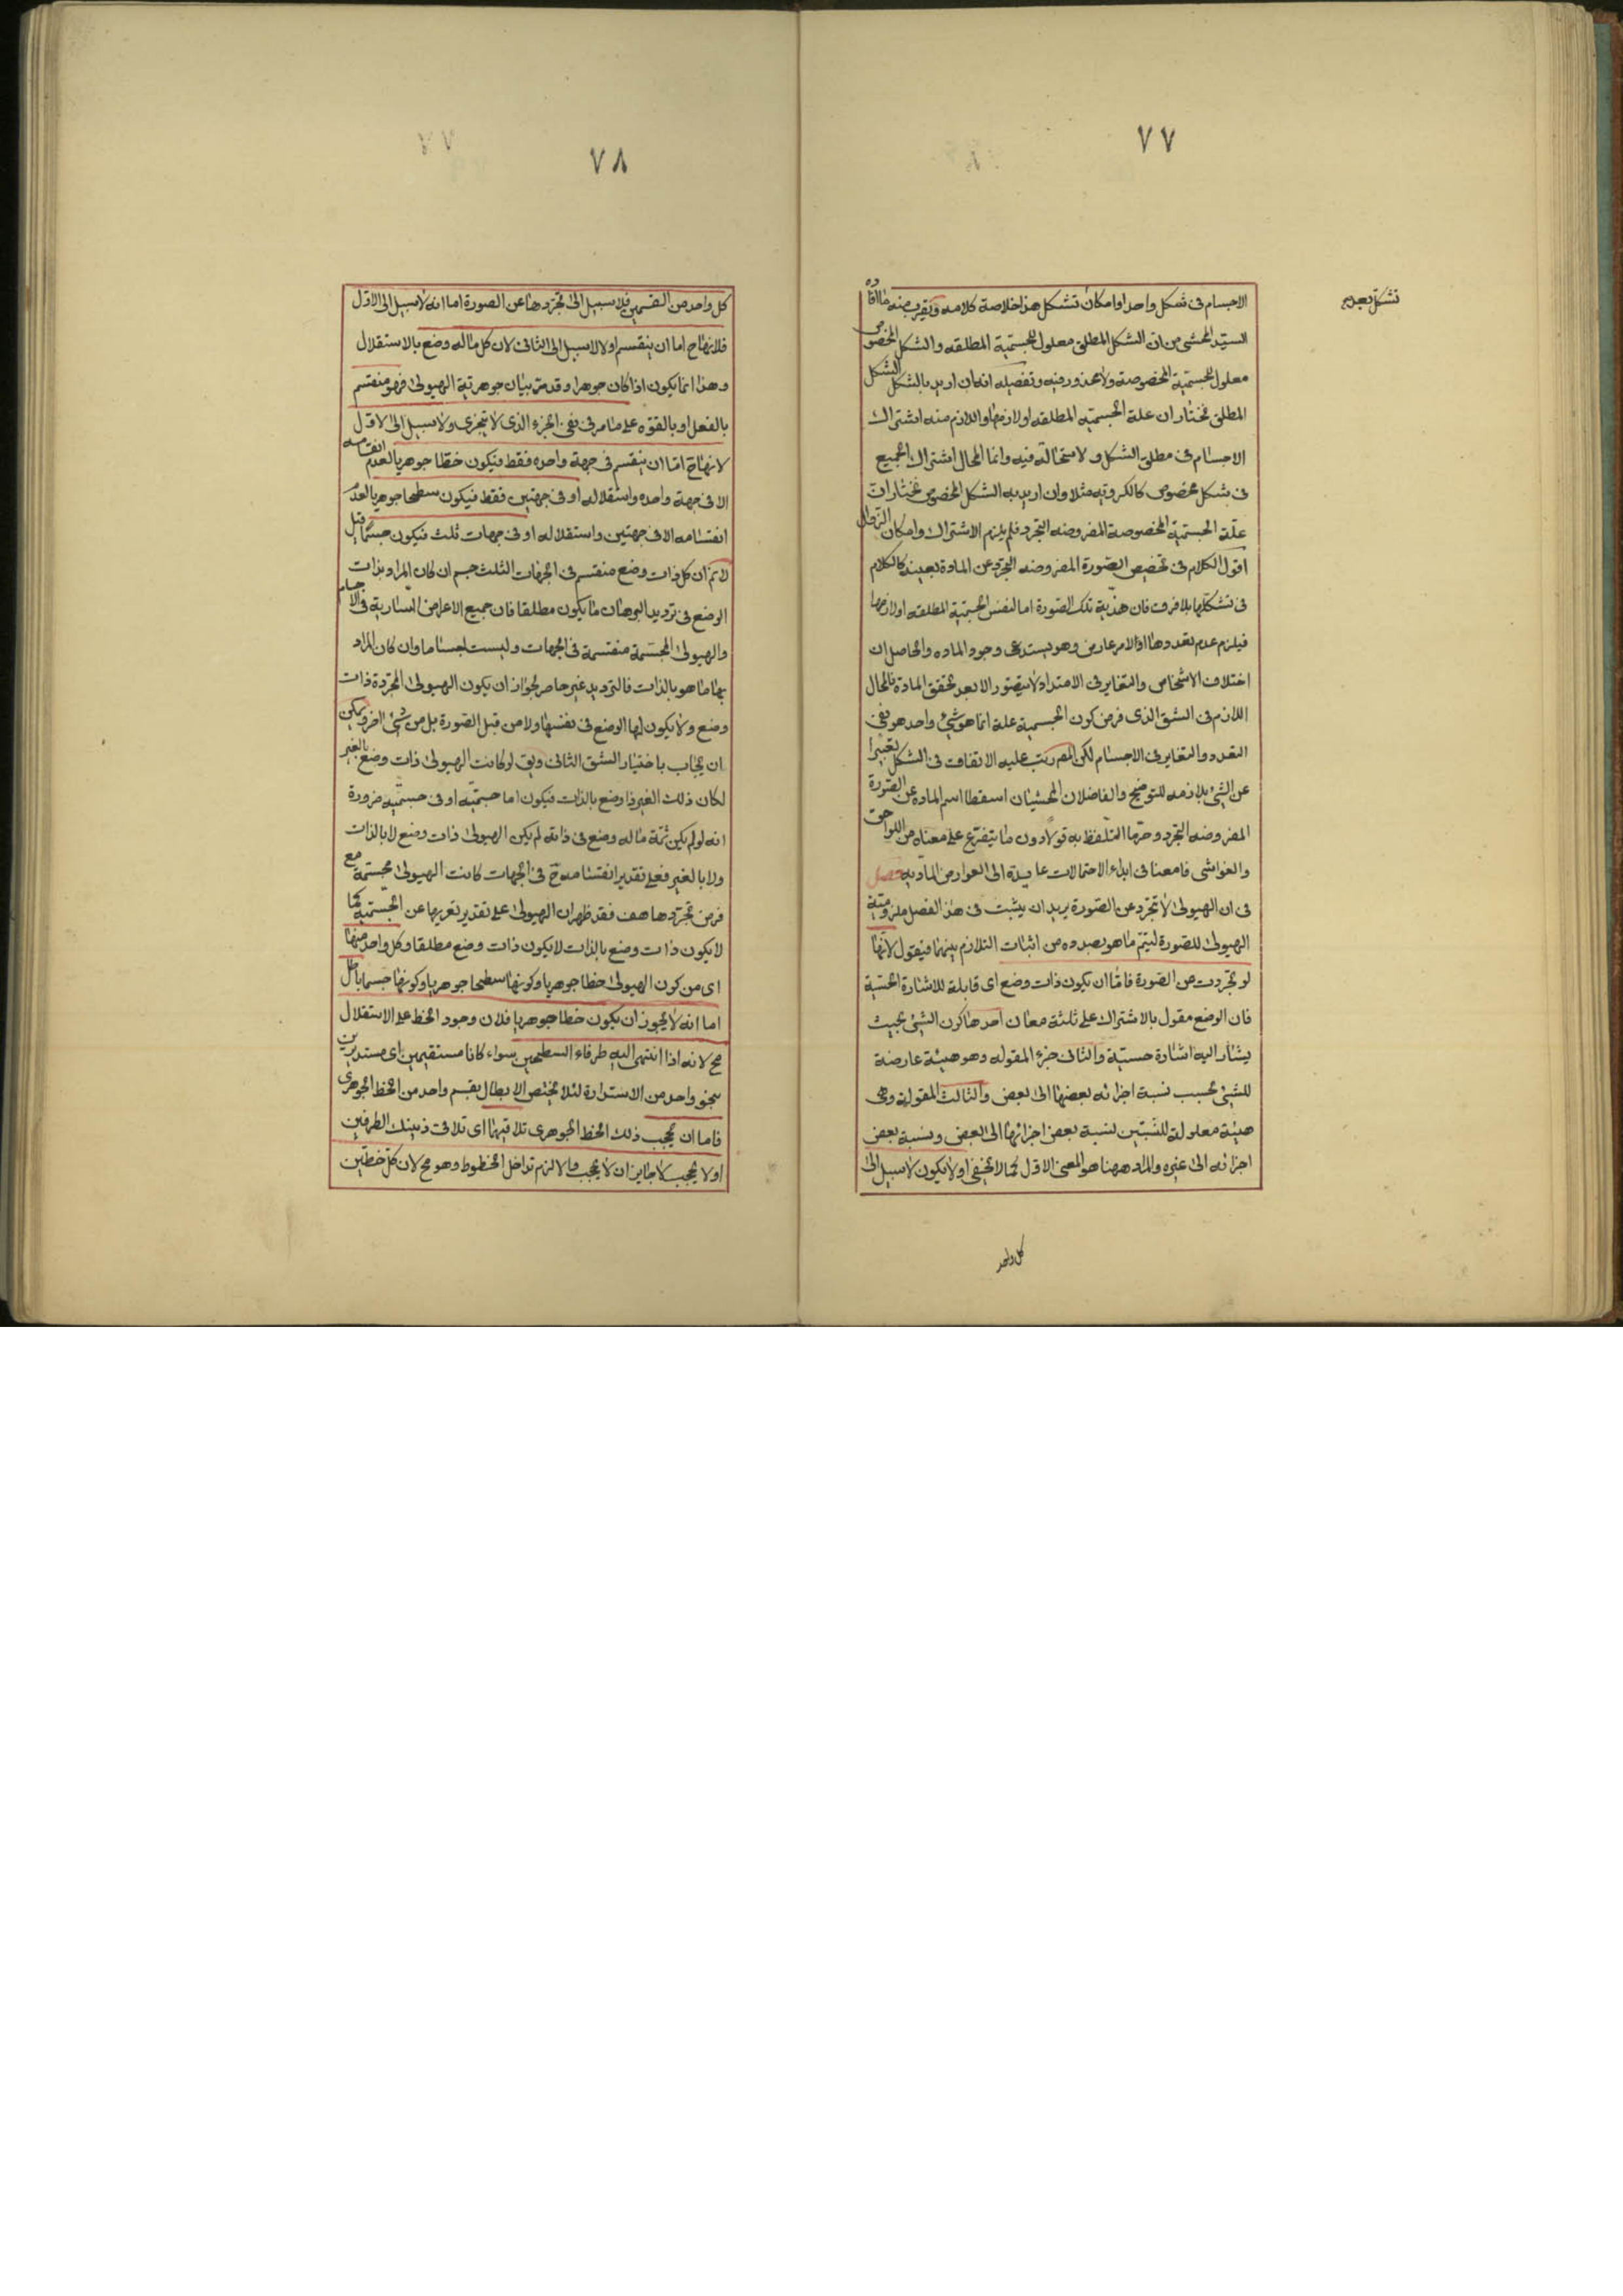 ٧٧
تشكل بعد
الاجسام فى شكل واحد او امكان تشكل هذا خلاصة كلامه ويقرب منه ما افاده
السيد المحشى من ان الشكل المطلق معلول للجسمية المطلقه والشكل المخصوص
معلول للجسمية المخصوصة ولا محذور فيه وتفصيله انه ان اريد بالشكل الشكل
المطلق نختار ان علة الجسمية المطلقه او لازمها واللازم منه اشتراك
الاجسام فى مطلق الشكل ولا استحالة فيه وانما المحال اشتراك الجميع
فى شكل مخصوص كالكروية مثلا وان اريد به الشكل المخصوص نختار ان
علة الجسمية المخصوصة المفروضه التجرد فلم يلزم الاشتراك وامكان
اقول الكلام فى تخصيص الصورة المفروضه التجرد عن المادة بعينه كالكلام
فى تشكلها بلا فرق فان هذية تلك الصورة اما لنفس الجسمية المطلقه او لازمها
فيلزم عدم تعددها او لامر عارض وهو يستدعى وجود الماده والحاصل ان
اختلاف الاشخاص والتغاير فى الامتداد لا يتصور الا بعد تحقق المادة فالمحال
اللازم فى الشق الذى فرض كون الجسمية علة انما هو شئ واحد هو نفى
التعدد والتغاير فى الاجسام لكن المص رتب عليه الاتفاق فى الشكل تعبيرا
عن الشئ بلازمه للتوضيح والفاضلان المحشيان اسقطا اسم الماده عن الصورة
المفروضه التجرد وحرما التلفظ به قولا دون ما يتفرع على معناه من اللواحق
والغواشى فامعنا فى ابداء الاحتمالات عايدة الى العوارض المادية فصل
فى ان الهيولى لا تتجرد عن الصورة يريد ان يثبت فى هذا الفصل ملزومية
الهيولى للصورة ليتم ما هو بصدده من اثبات التلازم بينهما فيقول لانها
لو تجردت عن الصورة فاما ان يكون ذات وضع اى قابلة للاشارة الحسية
فان الوضع مقول بالاشتراك على ثلثة معان احدها كون الشئ بحيث
يشار اليه اشارة حسية والثانى جزء المقوله وهو هيئة عارضة
للشئ بحسب نسبة اجزائه بعضها الى بعض والثالث المقولة وهى
هيئة معلولة للنسبتين لنسبة بعض اجزائها الى البعض وبنسبة بعض
اجزائه الى غيره والمراد ههنا هو المعنى الاول كما لا يخفى او لا يكون لا سبيل الى
كل واحد
٧٨
كل واحد من القسمين فلا سبيل الى تجردها عن الصورة اما انه لا سبيل الى الاول
فلانها ح اما ان ينقسم او لا لا سبيل الى الثانى لان كل ما له وضع بالاستقلال
وهذا انما يكون اذا كان جوهرا وقد مر بيان جوهرية الهيولى فهو منقسم
بالفعل او بالقوه على ما مر فى نفى الجزء الذى لا يتجزى ولا سبيل الى الاول
لانها ح اما ان ينقسم فى جهة واحده فقط فيكون خطا جوهريا لعدم انقسامه
الا فى جهة واحده واستقلاله او فى جهتين فقط فيكون سطحا جوهريا لعدم
انقسامه الا فى جهتين واستقلاله او فى جهات ثلث فيكون جسما قيل
لا نم ان كل ذات وضع منقسم فى الجهات الثلث جسم ان كان المراد بذات
الوضع فى ترديد البرهان ما يكون مطلقا فان جميع الاعراض السارية فى الاجسام
والهيولى المجسمة منقسمة فى الجهات وليست اجساما وان كان المراد
بها ما هو بالذات فالترديد غير حاصر لجواز ان يكون الهيولى المجردة ذات
وضع ولا يكون لها الوضع فى نفسها ولا من قبل الصورة بل من شئ اخر ويمكن
ان يجاب باختيار الشق الثانى ويق لو كانت الهيولى ذات وضع بالغير
لكان ذلك الغير ذا وضع بالذات فيكون اما جسمية او فى جسمية ضرورة
انه لو لم يكن ثمة ما له وضع فى ذاته لم يكن الهيولى ذات وضع لا بالذات
ولا بالغير فعلى تقدير انقسامه ح فى الجهات كانت الهيولى مجسمة مع
فرض تجردها هف فقد ظهر ان الهيولى على تقدير تعريها عن الجسمية كما
لا يكون ذات وضع بالذات لا يكون ذات وضع مطلقا وكل واحد منها
اى من كون الهيولى خطا جوهريا وكونها سطحا جوهريا وكونها جسما باطل
اما انه لا يجوز ان يكون خطا جوهريا فلان وجود الخط على الاستقلال
مح لانه اذا انتهى اليه طرفا السطحين سواء كانا مستقيمين اى مستديرين
بنحو واحد من الاستدارة لئلا يختص الابطال بقسم واحد من الخط الجوهرى
فاما ان يحجب ذلك الخط الجوهرى تلاقيهما اى تلاقى ذينك الطرفين
او لا يحجب لا جايز ان لا يحجب والا لزم تداخل الخطوط وهو مح لان كل خطين